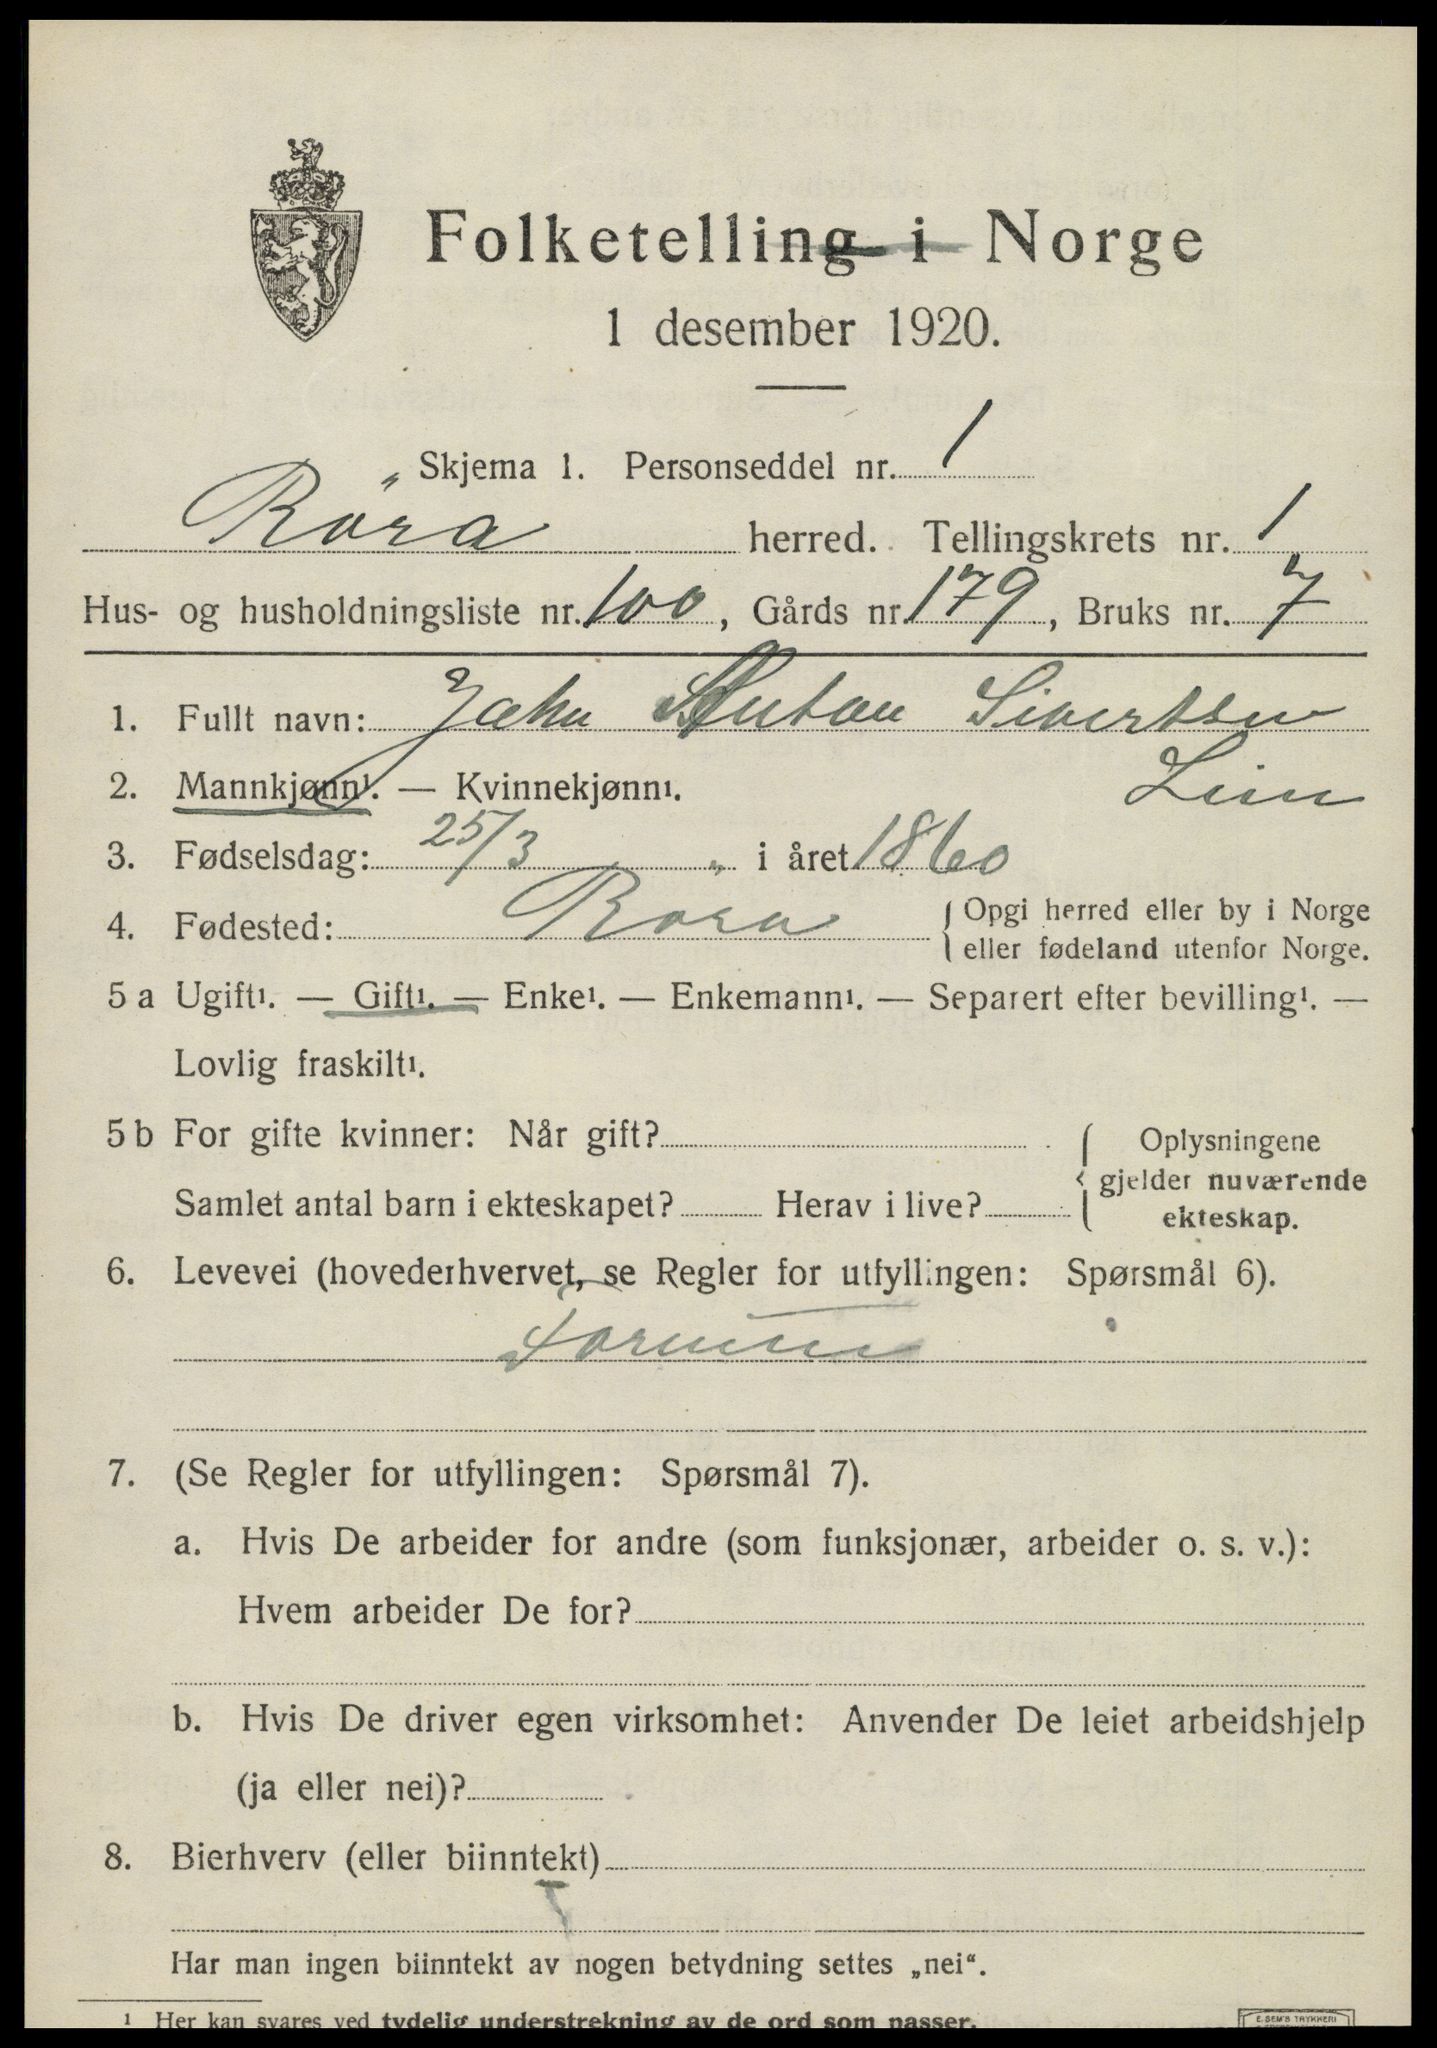 Folketelling i Norge
1 desember 1920.
Skjema 1. Personseddel nr. 1
Röra herred. Tellingskrets nr. 1
Hus- og husholdningsliste nr. 100, Gårds nr. 179, Bruks nr. 7
1. Fullt navn: John Anton Sivertsen
Lein
2. Mannkjønn¹. — Kvinnekjønn¹.
3. Fødselsdag: 25/3 i året 1860
4. Fødested: Rora { Opgi herred eller by i Norge
eller fødeland utenfor Norge.
5 a Ugift¹. — Gift¹. — Enke¹. — Enkemann¹. — Separert efter bevilling¹. —
Lovlig fraskilt¹.
5 b For gifte kvinner: Når gift? { Oplysningene
gjelder nuværende
Samlet antal barn i ekteskapet? Herav i live?
ekteskap.
6. Levevei (hovederhvervet, se Regler for utfyllingen: Spørsmål 6).
7. (Se Regler for utfyllingen: Spørsmål 7).
a. Hvis De arbeider for andre (som funksjonær, arbeider o. s. v.):
Hvem arbeider De for?
b. Hvis De driver egen virksomhet: Anvender De leiet arbeidshjelp
(ja eller nei)?
8. Bierhverv (eller biinntekt)
Har man ingen biinntekt av nogen betydning settes „nei“.
¹ Her kan svares ved tydelig understrekning av de ord som passer.
E. SEM'S TRYKKERI